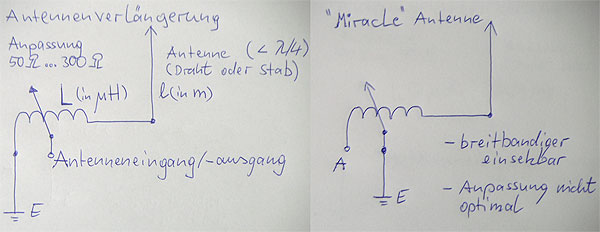 Antennenverlängerung
Anpassung
50Ω...300Ω
Antenne (< λ/4)
(Draht oder Stab)
L (in µH)
l (in m)
Antenneneingang/-ausgang
E
"Miracle" Antenne
A
- breitbandiger
einsetzbar
E
- Anpassung nicht
optimal